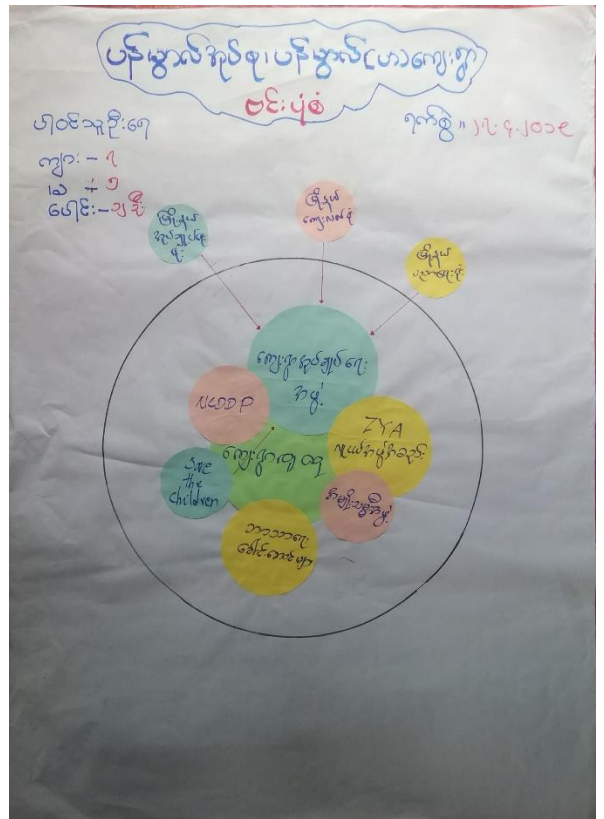 ပန်မွှာလ်အုပ်စု၊ ပန်မွှာလ်(ဟ)ကျေးရွာ
ဗင်းပုံစံ
ပါဝင်သူဦးရေ
ရက်စွဲ။
ကျား - ၇
မ - ၁
ပေါင်း - ၈ ဦး
မြို့နယ်
အုပ်ချုပ်ရေး
မှူး
မြို့နယ်
ကျေးလက်ဦးစီး
မြို့နယ်
ပညာရေးမှူး
ကျေးရွာအုပ်ချုပ်ရေး
အဖွဲ့
NCDDP
ZYA
လူငယ်အဖွဲ့အစည်း
ကျေးရွာလူထု
Save
the
Children
အမျိုးသမီးအဖွဲ့
ဘာသာရေး
ခေါင်းဆောင်များ